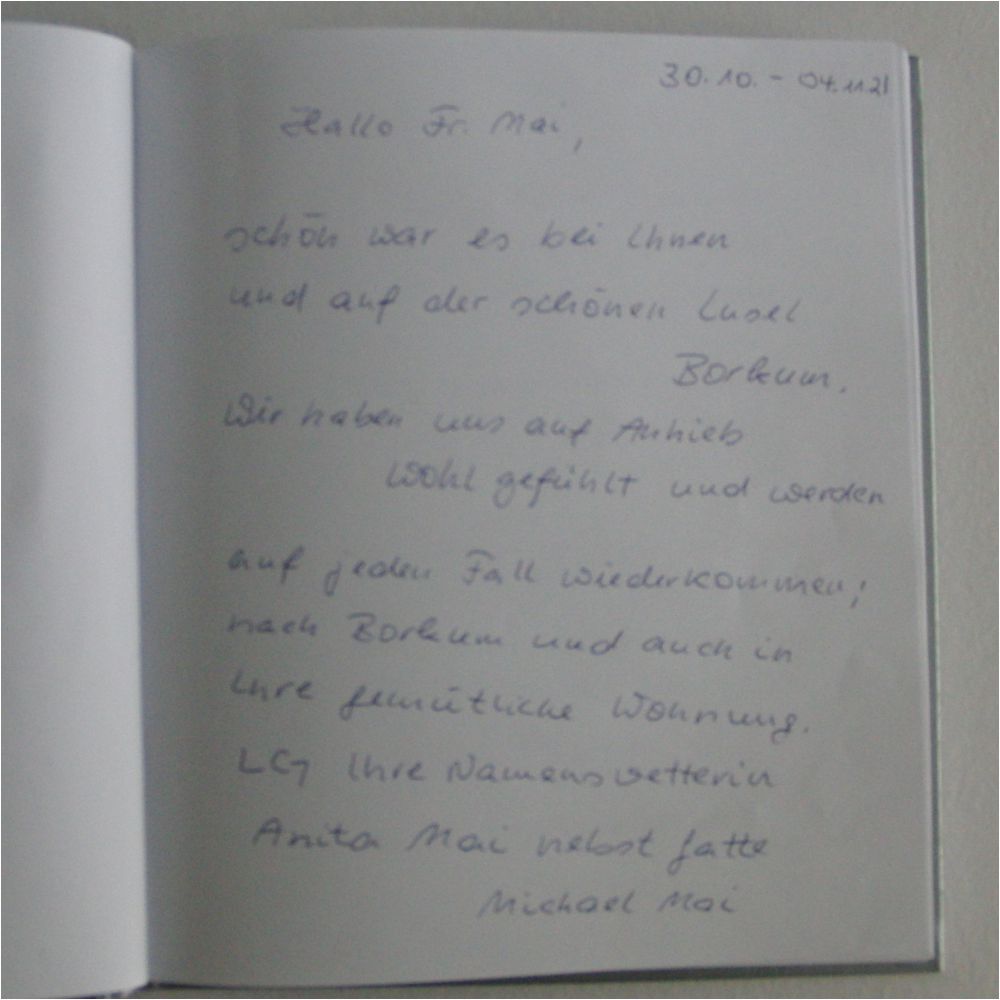 30.10. - 04.11.21
Hallo Fr. Mai,
schön war es bei Ihnen
und auf der schönen Insel
Borkum.
Wir haben uns auf Anhieb
wohl gefühlt und werden
auf jeden Fall wiederkommen;
nach Borkum und auch in
Ihre gemütliche Wohnung.
LG Ihre Namensvetterin
Anita Mai nebst Gatte
Michael Mai